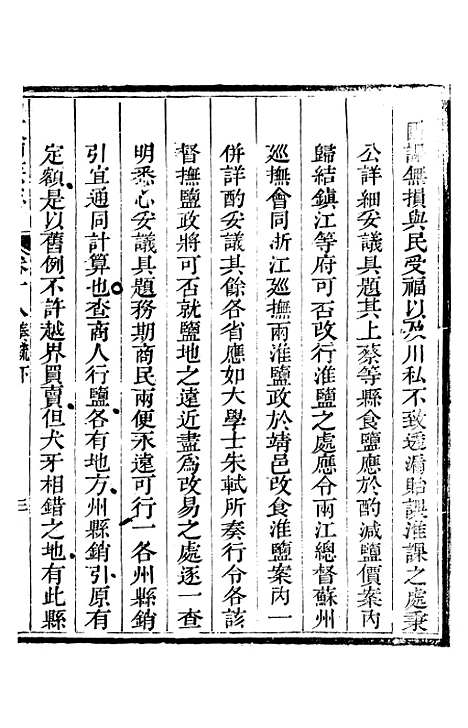 國課無損與民受福以及川私不致透漏貽誤淮課之處秉
公詳細妥議具題其上蔡等縣食鹽應於酌減鹽價案內
歸結鎮江等府可否改行淮鹽之處應令兩江總督蘇州
巡撫會同浙江巡撫兩淮鹽政於靖邑改食淮鹽案內一
併詳酌妥議其餘各省應如大學士朱軾所奏行令各該
督撫鹽政將可否就鹽地之遠近盡為改易之處逐一查
明悉心妥議具題務期商民兩便永遠可行一各州縣銷
引宜通同計算也查商人行鹽各有地方州縣銷引原有
定額是以舊例不許越界買賣但犬牙相錯之地有此縣
卷十八奏疏下
三